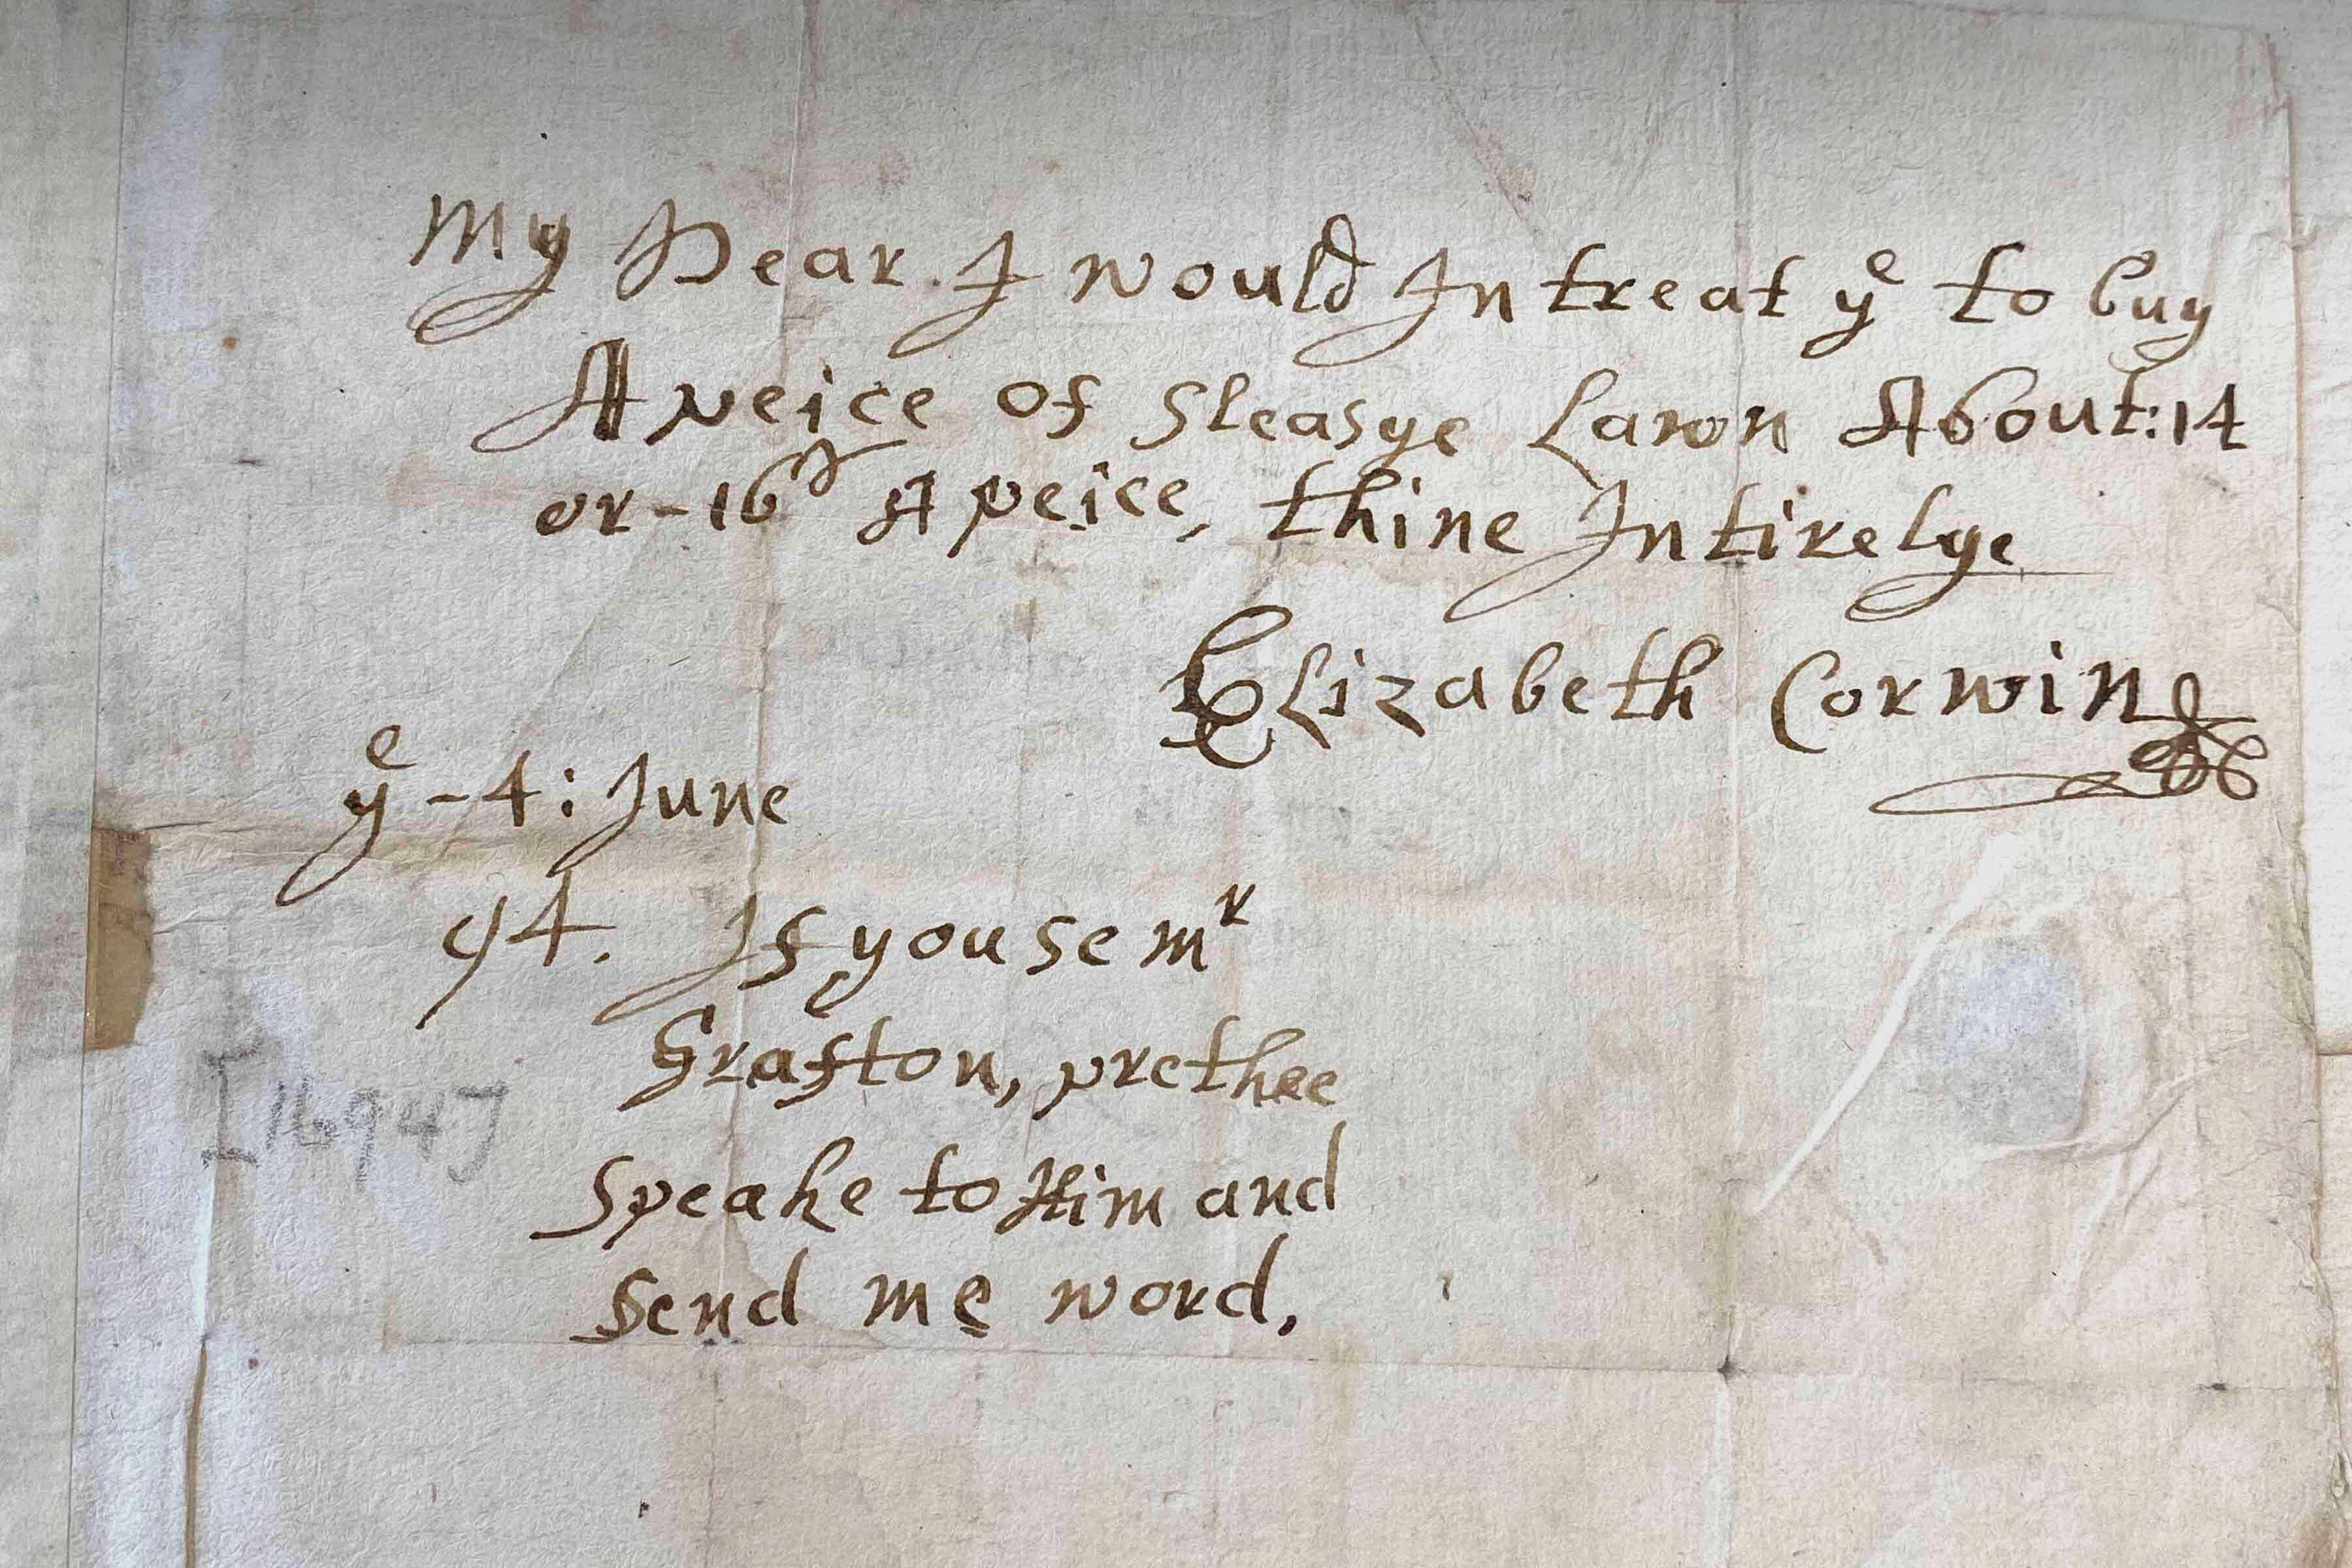 My Dear I would Intreat yᵉ to buy
A peice of Sleasye Lawn About: 14
or - 16ˢ A peice, thine Intirelye
Elizabeth Corwin
yᵉ - 4: June
94. If you se mʳ
Grafton, prethee
Speake to Him and
Send me word.
[16947]